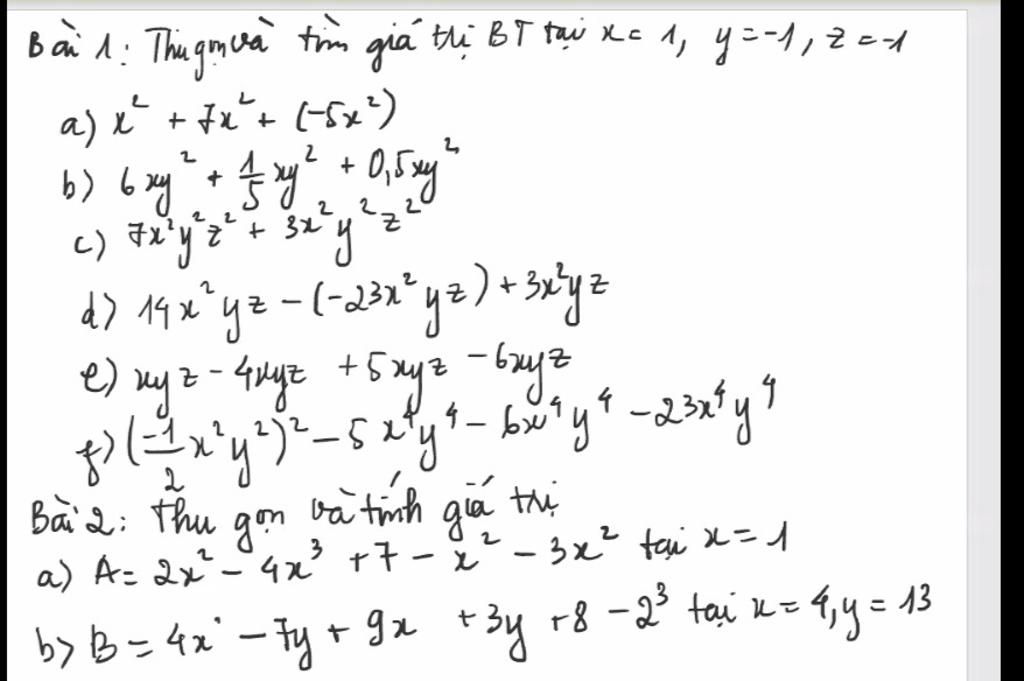 Bài 1: Thu gọn và tìm giá trị BT tại x = 1, y = -1, z = -1
a) x² + 7x² + (-5x²)
b) 6xy² + 1/5 xy² + 0,5xy²
c) 7x²y²z² + 3x²y²z²
d) 14x²yz - (-23x²yz) + 3x²yz
e) xyz - 4xyz + 5xyz - 6xyz
f) (-1/2 x²y²)² - 5x⁴y⁴ - 6x⁴y⁴ - 23x⁴y⁴
Bài 2: Thu gọn và tính giá trị
a) A = 2x² - 4x³ + 7 - x² - 3x² tại x = 1
b) B = 4x - 7y + 9x + 3y + 8 - 2³ tại x = 4, y = 13